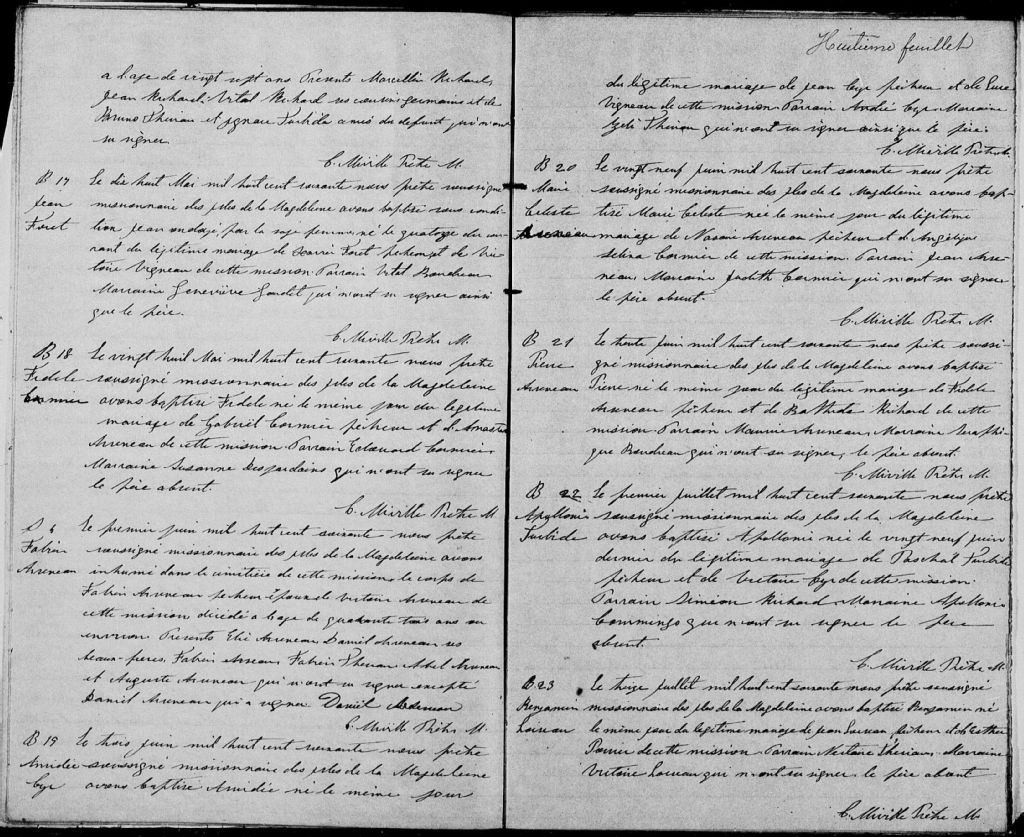 a l'age de vingt sept ans Presents Marcellin Richard,
Jean Richard, Vital Richard ses cousins germains et de
Bruno Theriau et Ignace Turbide amis du defunt qui n'ont
su signer.
C. Miville Prêtre M.
B 17 Le dix huit Mai mil huit cent soixante nous prêtre soussigné
Jean missionnaire des îles de la Magdeleine avons baptisé sous condi-
Foret tion, jean ondoyé par la sage femme, né le quatorze du cou
rant du légitime mariage de Foret pecheur et de Vic
toire Vigneau de cette mission. Parrain Vital Boudreau
Marraine Geneviève Gaudet qui n'ont su signer ainsi
que le père.
C. Miville Prêtre M.
B 18 Le vingt huit Mai mil huit cent soixante nous prêtre
Fidele soussigné missionnaire des îles de la Magdeleine
Cormier avons baptisé Fidele né le même jour du légitime
mariage de Gabriel Cormier pêcheur et d'Anastasie
Arseneau de cette mission. Parrain Edouard Cormier,
Marraine Suzanne Desjardins qui n'ont su signer
le père absent.
C. Miville Prêtre M.
S 6 Le premier juin mil huit cent soixante nous prêtre
Fabien soussigné missionnaire des îles de la Magdeleine avons
Arseneau inhumé dans le cimetière de cette mission, le corps de
Fabien Arseneau pecheur époux de Victoire Arseneau de
cette mission décédé a l'age de quarante trois ans ou
environ Presents Elie Arseneau Daniel Arseneau ses
beaux-freres, Fabien Arseneau, Fabien Theriau Abel Arseneau
et Auguste Arseneau qui n'ont su signer excepté
Daniel Arseneau qui a signer Daniel Arseneau
C. Miville Prêtre M.
B 19 Le trois juin mil huit cent soixante nous prêtre
Amédée soussigné missionnaire des îles de la Magdeleine
Cyr avons baptisé Amédée né le même jour
Huitieme feuillet
du légitime mariage de jean Cyr pêcheur et de
Vigneau de cette mission. Parrain André Cyr, Marraine
Theriau qui n'ont su signer ainsi que le père.
C. Miville Prêtre M.
B 20 Le vingt neuf juin mil huit cent soixante nous prêtre
Marie soussigné missionnaire des îles de la Magdeleine avons bap-
Celeste tisé Marie Celeste née le même jour du légitime
Arseneau mariage de Nazaire Arseneau pêcheur et d'Angelique
Cormier de cette mission. Parrain Jean Arse
neau, Marraine Judith Cormier qui n'ont su signer
le père absent.
C. Miville Prêtre M.
B 21 Le trente juin mil huit cent soixante nous prêtre soussi-
Pierre gné missionnaire des îles de la Magdeleine avons baptisé
Arseneau Pierre né le même jour du légitime mariage de Fidele
Arseneau pêcheur et de Bathilde Richard de cette
mission. Parrain Maurice Arseneau, Marraine Seraphi-
que Boudreau qui n'ont su signer, le père absent.
C. Miville Prêtre M.
B 22 Le premier juillet mil huit cent soixante nous prêtre
Apollonie soussigné missionnaire des îles de la Magdeleine
Turbide avons baptisé Apollonie née le vingt neuf juin
dernier du légitime mariage de Paschal Turbide
pêcheur et de Victoire Cyr de cette mission.
Parrain Siméon Richard, Marraine Apollonie
Commingo qui n'ont su signer le père
absent.
C. Miville Prêtre M.
B. 23 Le treize juillet mil huit cent soixante nous prêtre soussigné
Benjamin missionnaire des îles de la Magdeleine avons baptisé Benjamin né
Loiseau le même jour du légitime mariage de jean Loiseau pêcheur et d'Esther
Poirier de cette mission. Parrain Nectaire Theriau, Marraine
Victoire Loiseau qui n'ont su signer, le père absent
C. Miville Prêtre M.